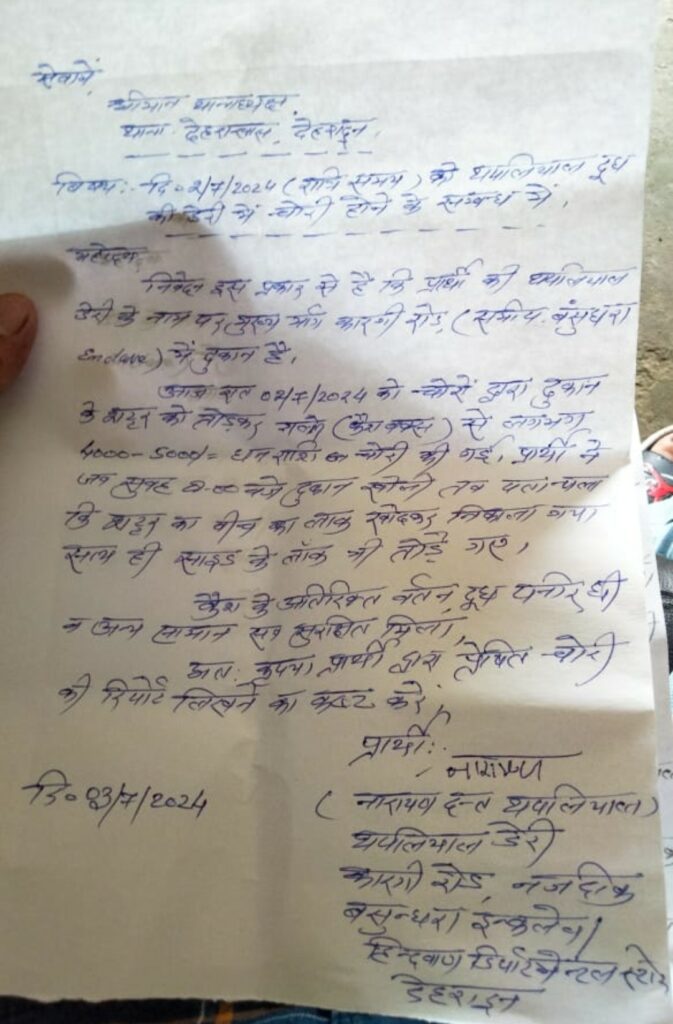 सेवामें,
श्रीमान थानाध्यक्ष
थाना देहराखास, देहरादून,
विषय:- दि० 2/7/2024 (रात्रि समय) को थपलियाल दूध
की डेरी में चोरी होने के सम्बन्ध में,
महोदय
निवेदन इस प्रकार से है कि प्रार्थी की थपलियाल
डेरी के नाम पर मुख्य मार्ग कारगी रोड, (समीप बसुंधरा
Enclave) में दुकान है,
आज रात 02/7/2024 को चोरों द्वारा दुकान
के शटर को तोड़कर गल्ले (कैश बक्स) से लगभग
4000-5000/= धन राशि की चोरी की गई, प्रार्थी ने
जब सुबह बजे दुकान खोली तब पता चला
कि शटर का बीच का लॉक खोदकर निकाला गया
साथ ही साइड के लॉक भी तोड़े गए,
कैश के अतिरिक्त बर्तन, दूध पनीर घी
व अन्य सामान सब सुरक्षित मिला,
अत: कृपया प्रार्थी द्वारा प्रेषित चोरी
की रिपोर्ट लिखने का कष्ट करें,
प्रार्थी:
नारायण
दि० 03/7/2024
(नारायण दत्त थपलियाल)
थपलियाल डेरी
कारगी रोड, नजदीक
बसुन्धरा इन्क्लेव/
हिन्दवाण डिपार्टमेन्टल स्टोर
देहरादून